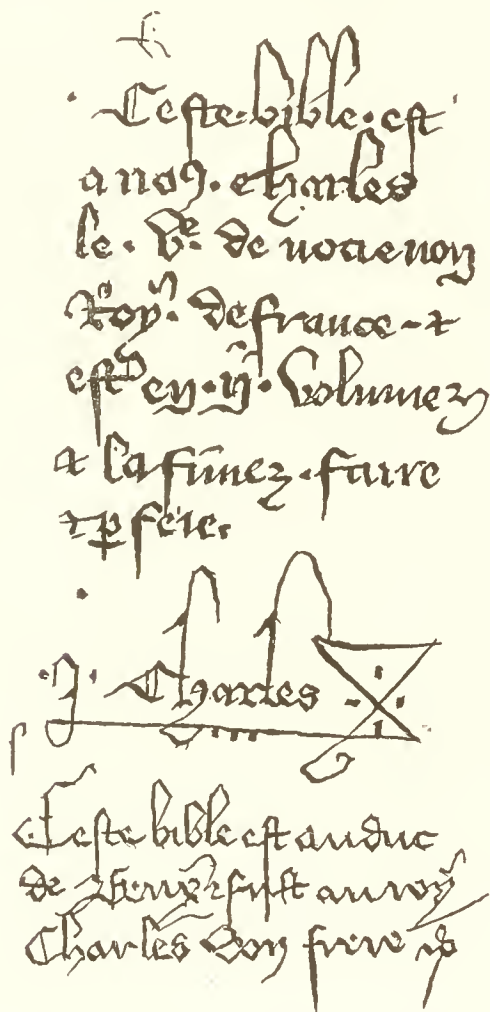 Ceste · bible · est
a no9 · Charles
le · Ve · de notre nom
Roy · de france · et
est en · ij · Volumez
et la fimez · faire
et p fere.
· J · Charles
Ceste bible est au duc
de Berry et fust au roy
Charles son frere